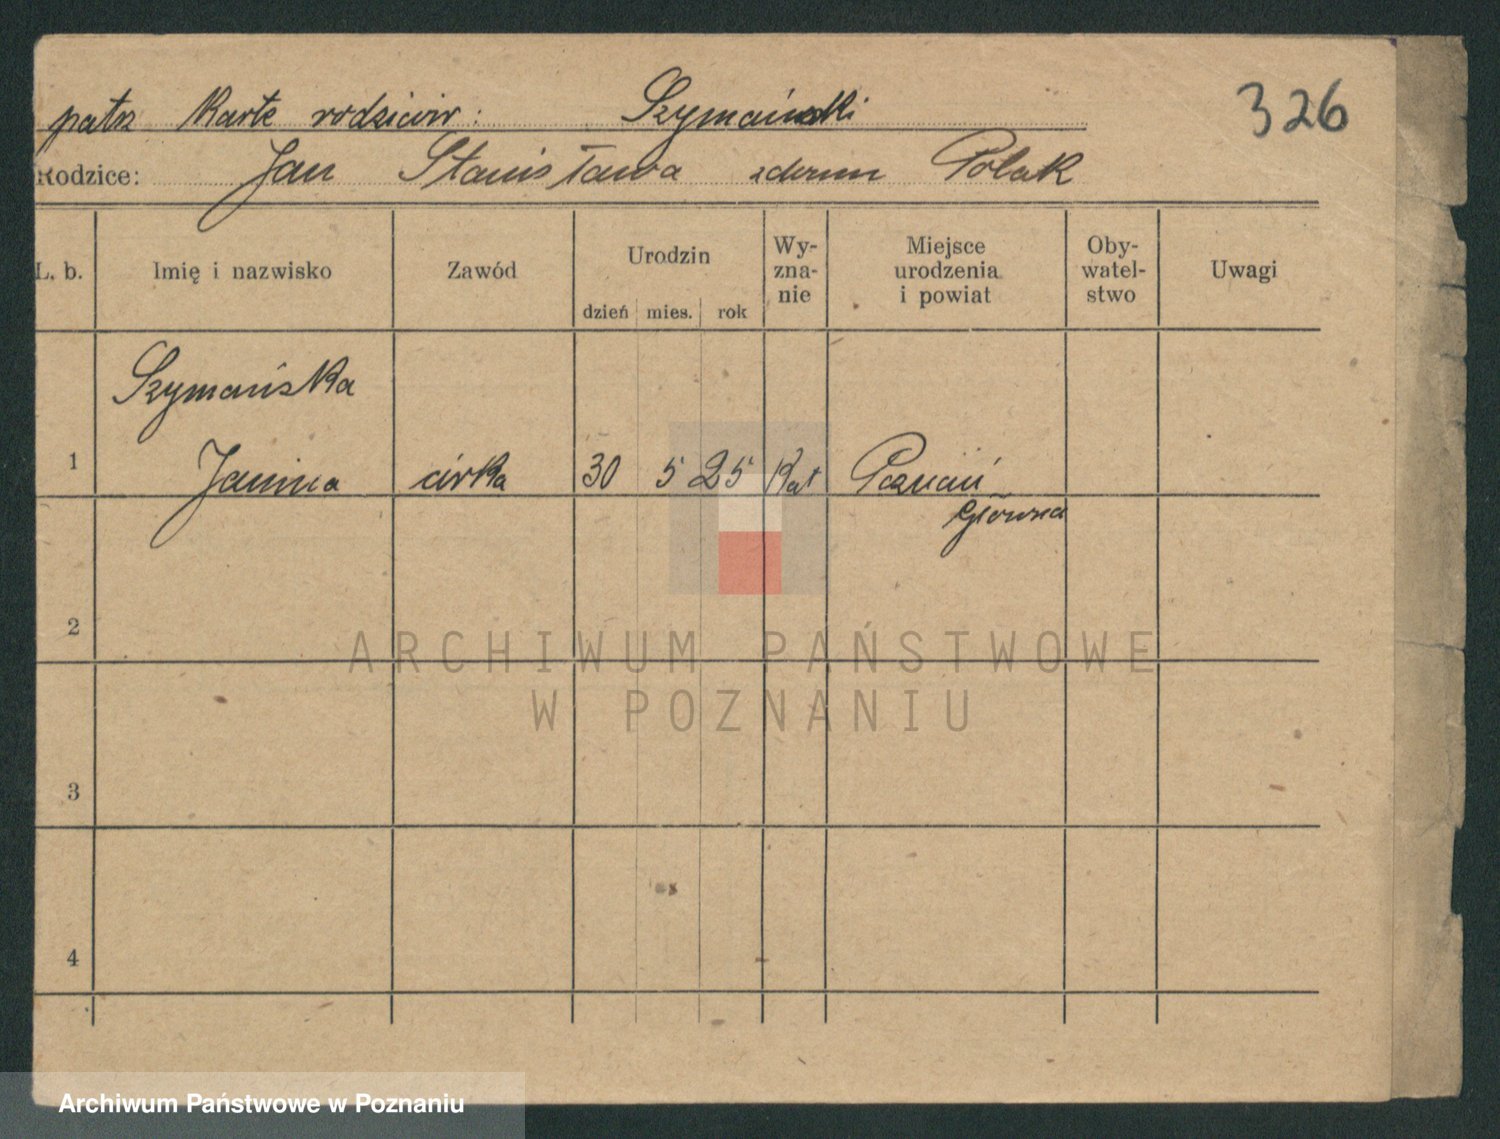 patrz Karte rodziców: Szymański
326
Rodzice: Jan Stanisława z domu Polak
L. b.
Imię i nazwisko
Zawód
Urodzin
dzień mies. rok
Wy-
zna-
nie
Miejsce
urodzenia
i powiat
Oby-
watel-
stwo
Uwagi
Szymańska
1 Janina córka 30 5 25 Kat Poznań
Główna
2
3
4
ARCHIWUM PAŃSTWOWE
W POZNANIU
Archiwum Państwowe w Poznaniu